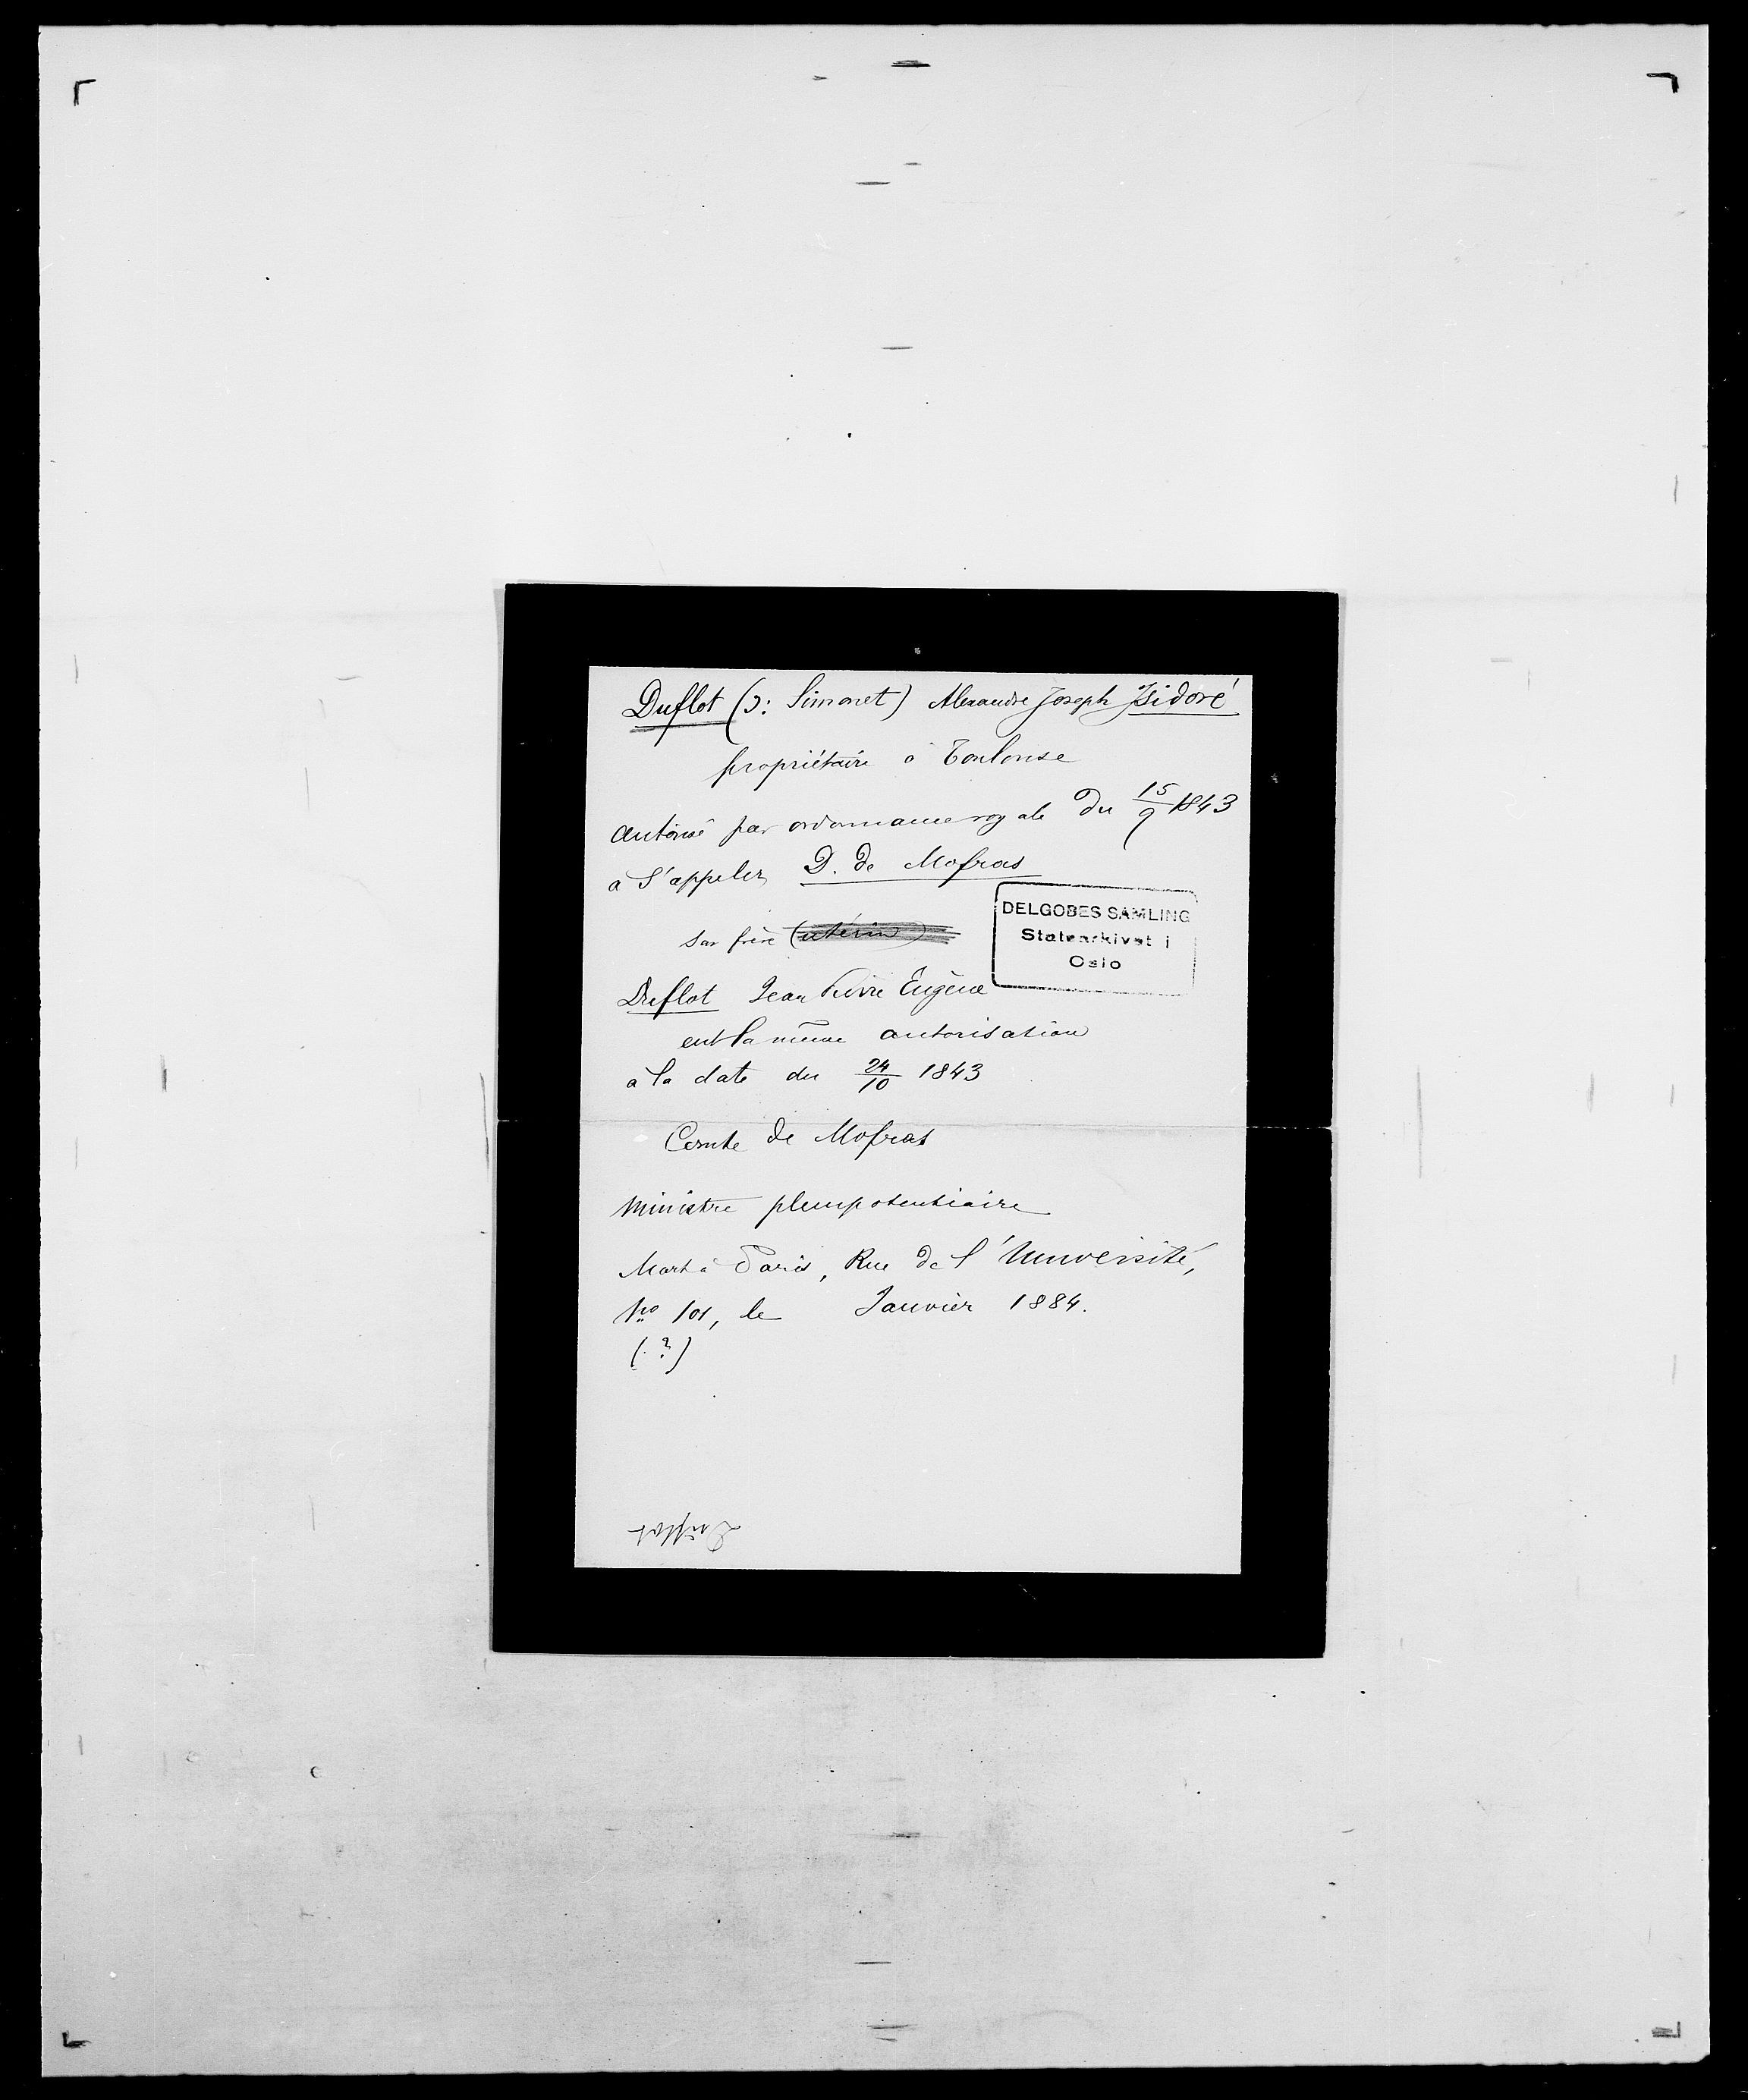 Duflot (ɔ: Simonet) Alexandre Joseph Isidore
propriétaire à Toulouse
autorisé par ordonnance royale du 15/9 1843
à s'appeler D. de Mofras
DELGOBES SAMLING
Statsarkivet i
Oslo
son frère (utérin)
Duflot Jean Pierre Eugène
eut la même autorisation
à la date du 24/10 1843
Comte de Mofras
Ministre plenipotentiaire
Mort à Paris, Rue de l'Université,
No 101, le Janvier 1884.
(?)
Duflot